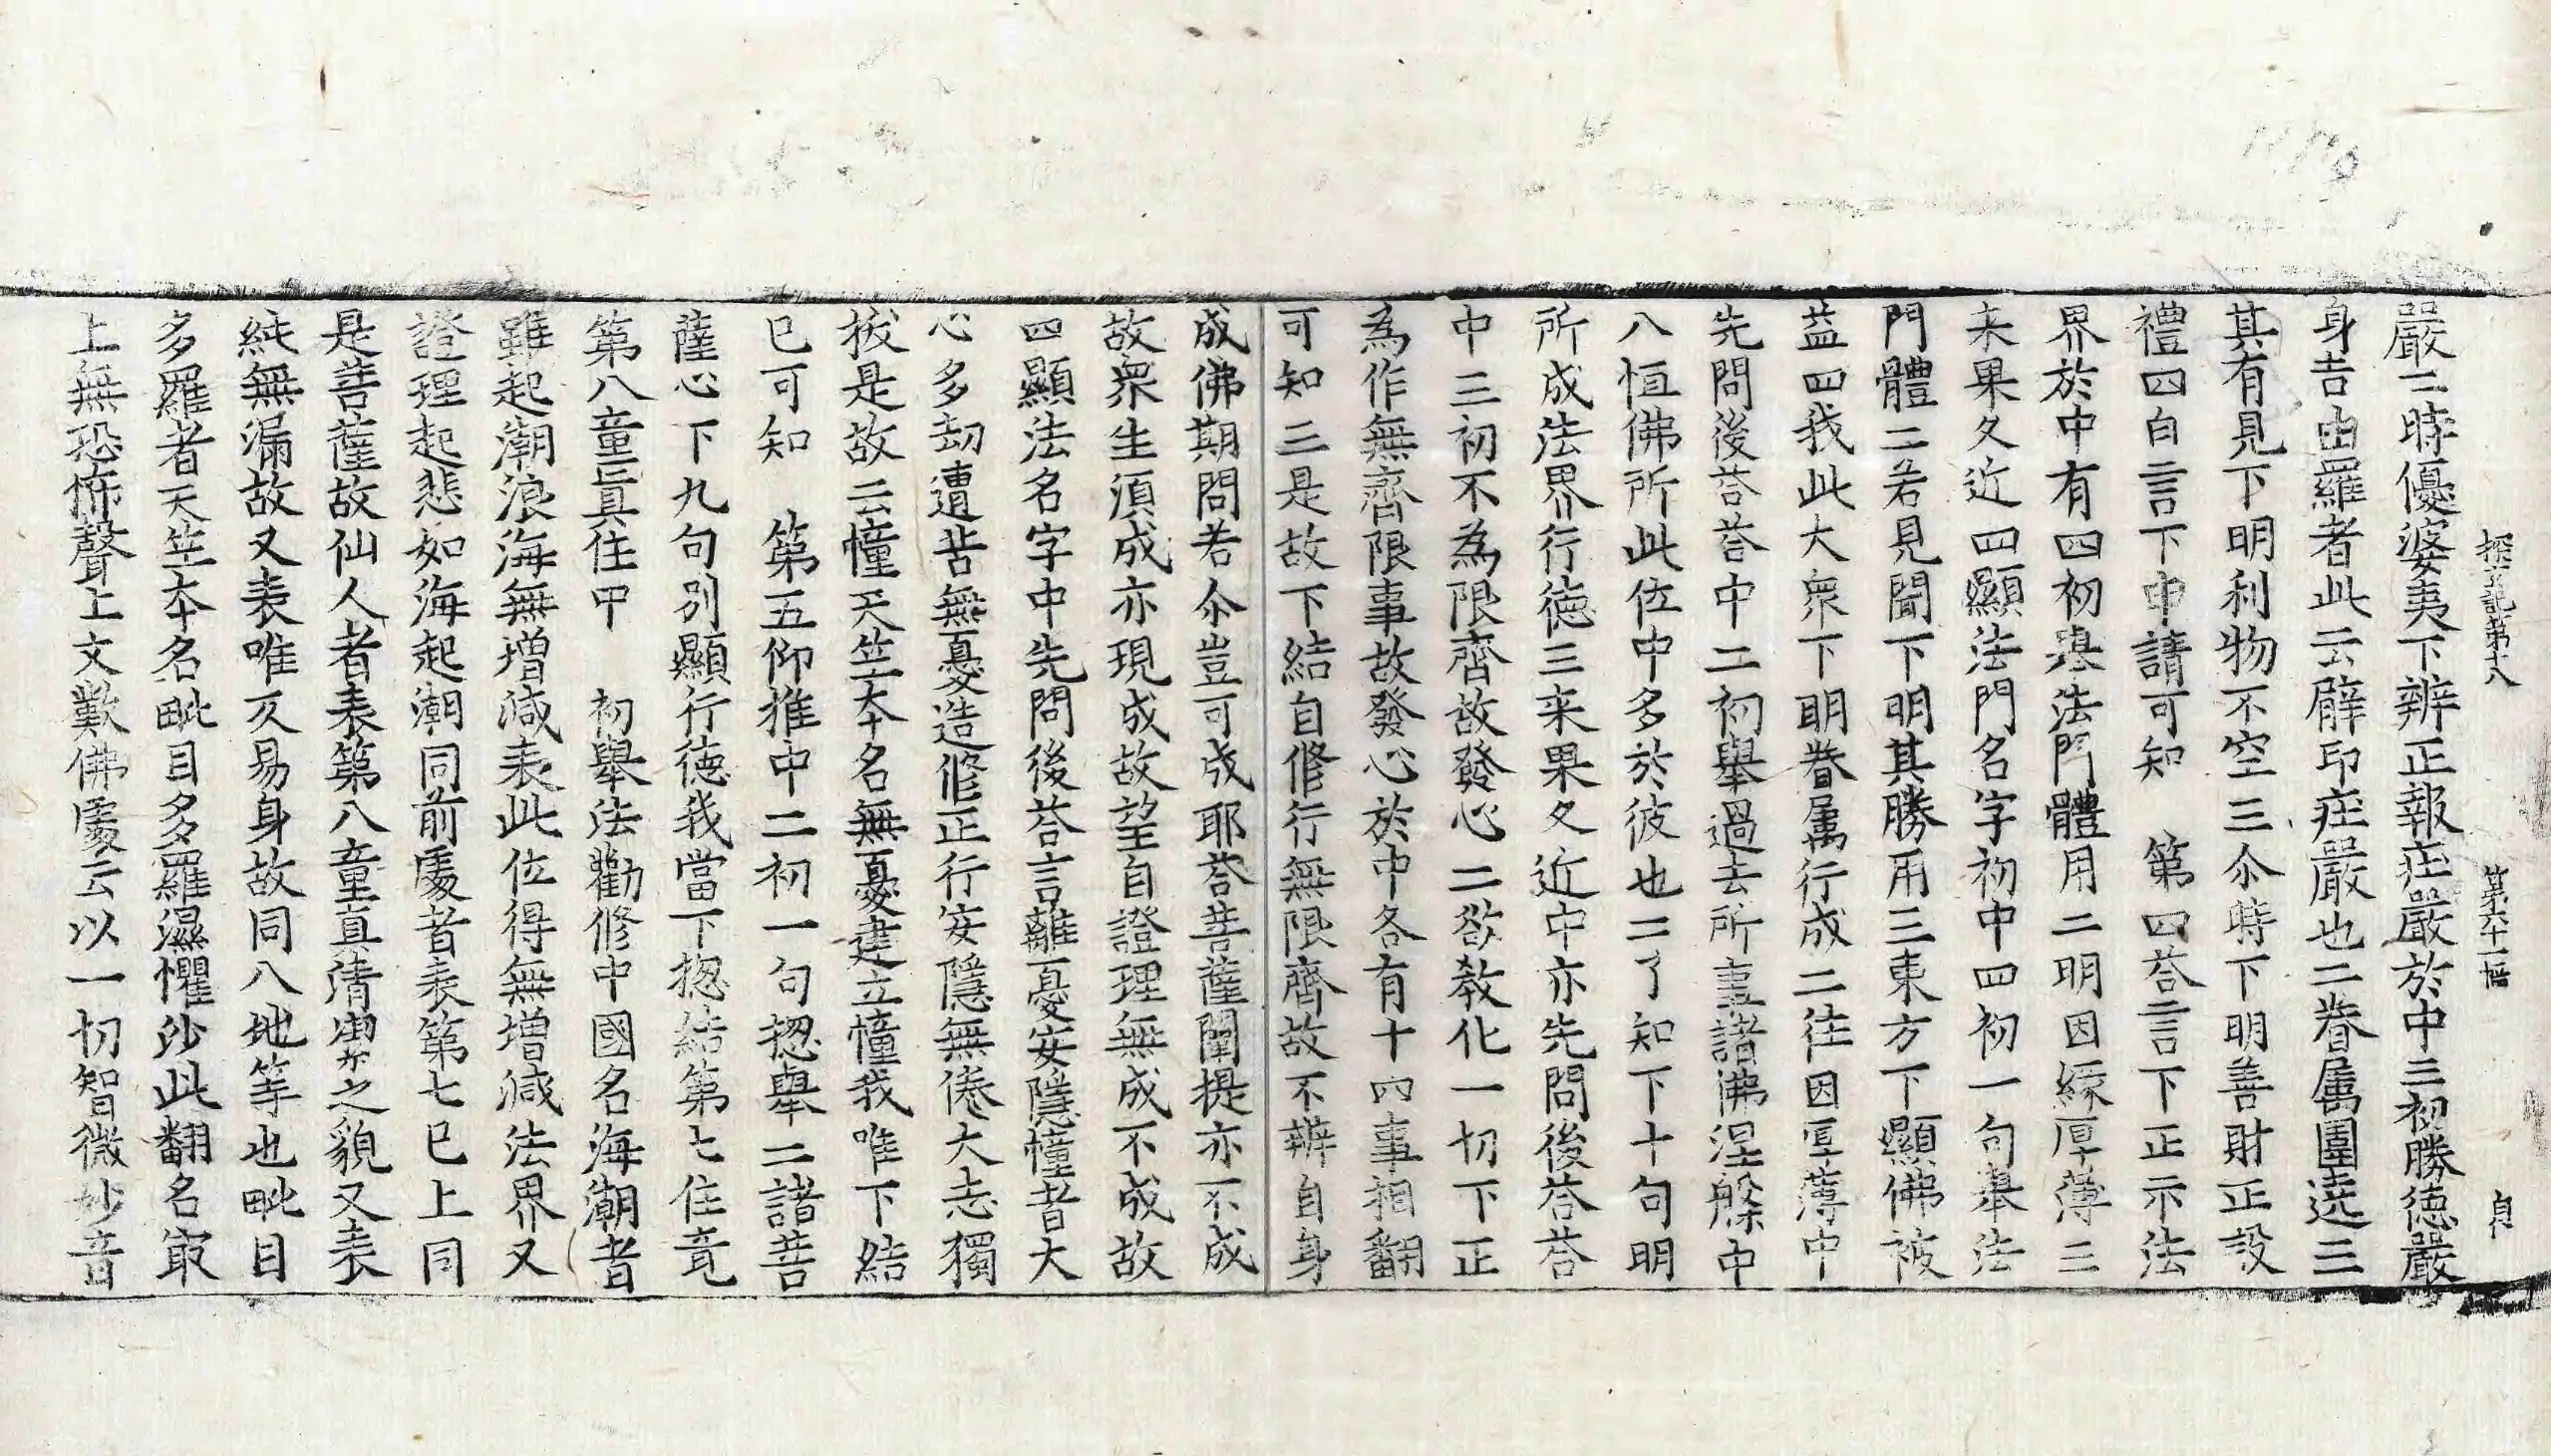 探玄記第十八 第六十一幅 貞
嚴二時優婆夷下辨正報疘嚴於中三初勝德嚴
身吉由羅者此云臂印疘嚴也二眷属圍遶三
其有見下明利物不空三尒時下明善財正設
禮四白言下申請可知 第四荅言下正示法
界於中有四初舉法門體用二明因緣厚薄三
来果久近四顯法門名字初中四初一句舉法
門體二若見聞下明其勝用三東方下顯佛被
益四我此大衆下明眷属行成二往因厚薄中
先問後荅荅中二初舉過去所事諸佛涅槃中
八恒佛所此位中多於彼也二了知下十句明
所成法界行德三来果久近中亦先問後荅荅
中三初不為限齊故發心二欲教化一切下正
為作無齊限事故發心於中各有十四事相翻
可知三是故下結自修行無限齊故不辨自身
成佛期問若尒豈可成耶荅菩薩闡提亦不成
故衆生須成亦現成故望自證理無成不成故
四顯法名字中先問後荅言離憂安隱幢者大
心多劫遭苦無憂造修正行安隱無倦大志獨
拔是故云幢天竺本名無憂建立幢我唯下結
已可知 第五仰推中二初一句揔舉二諸菩
薩心下九句別顯行德我當下揔結第七住竟
第八童真住中 初舉法勸修中國名海潮者
雖起潮浪海無增減表此位得無增減法界又
證理起悲如海起潮同前處者表第七已上同
是菩薩故仙人者表第八童真清潔之貌又表
純無漏故又表唯仄易身故同八地等也毗目
多羅者天竺本名毗目多羅濕懼沙此翻名最
上無恐怖聲上文歎佛處云以一切智微妙音